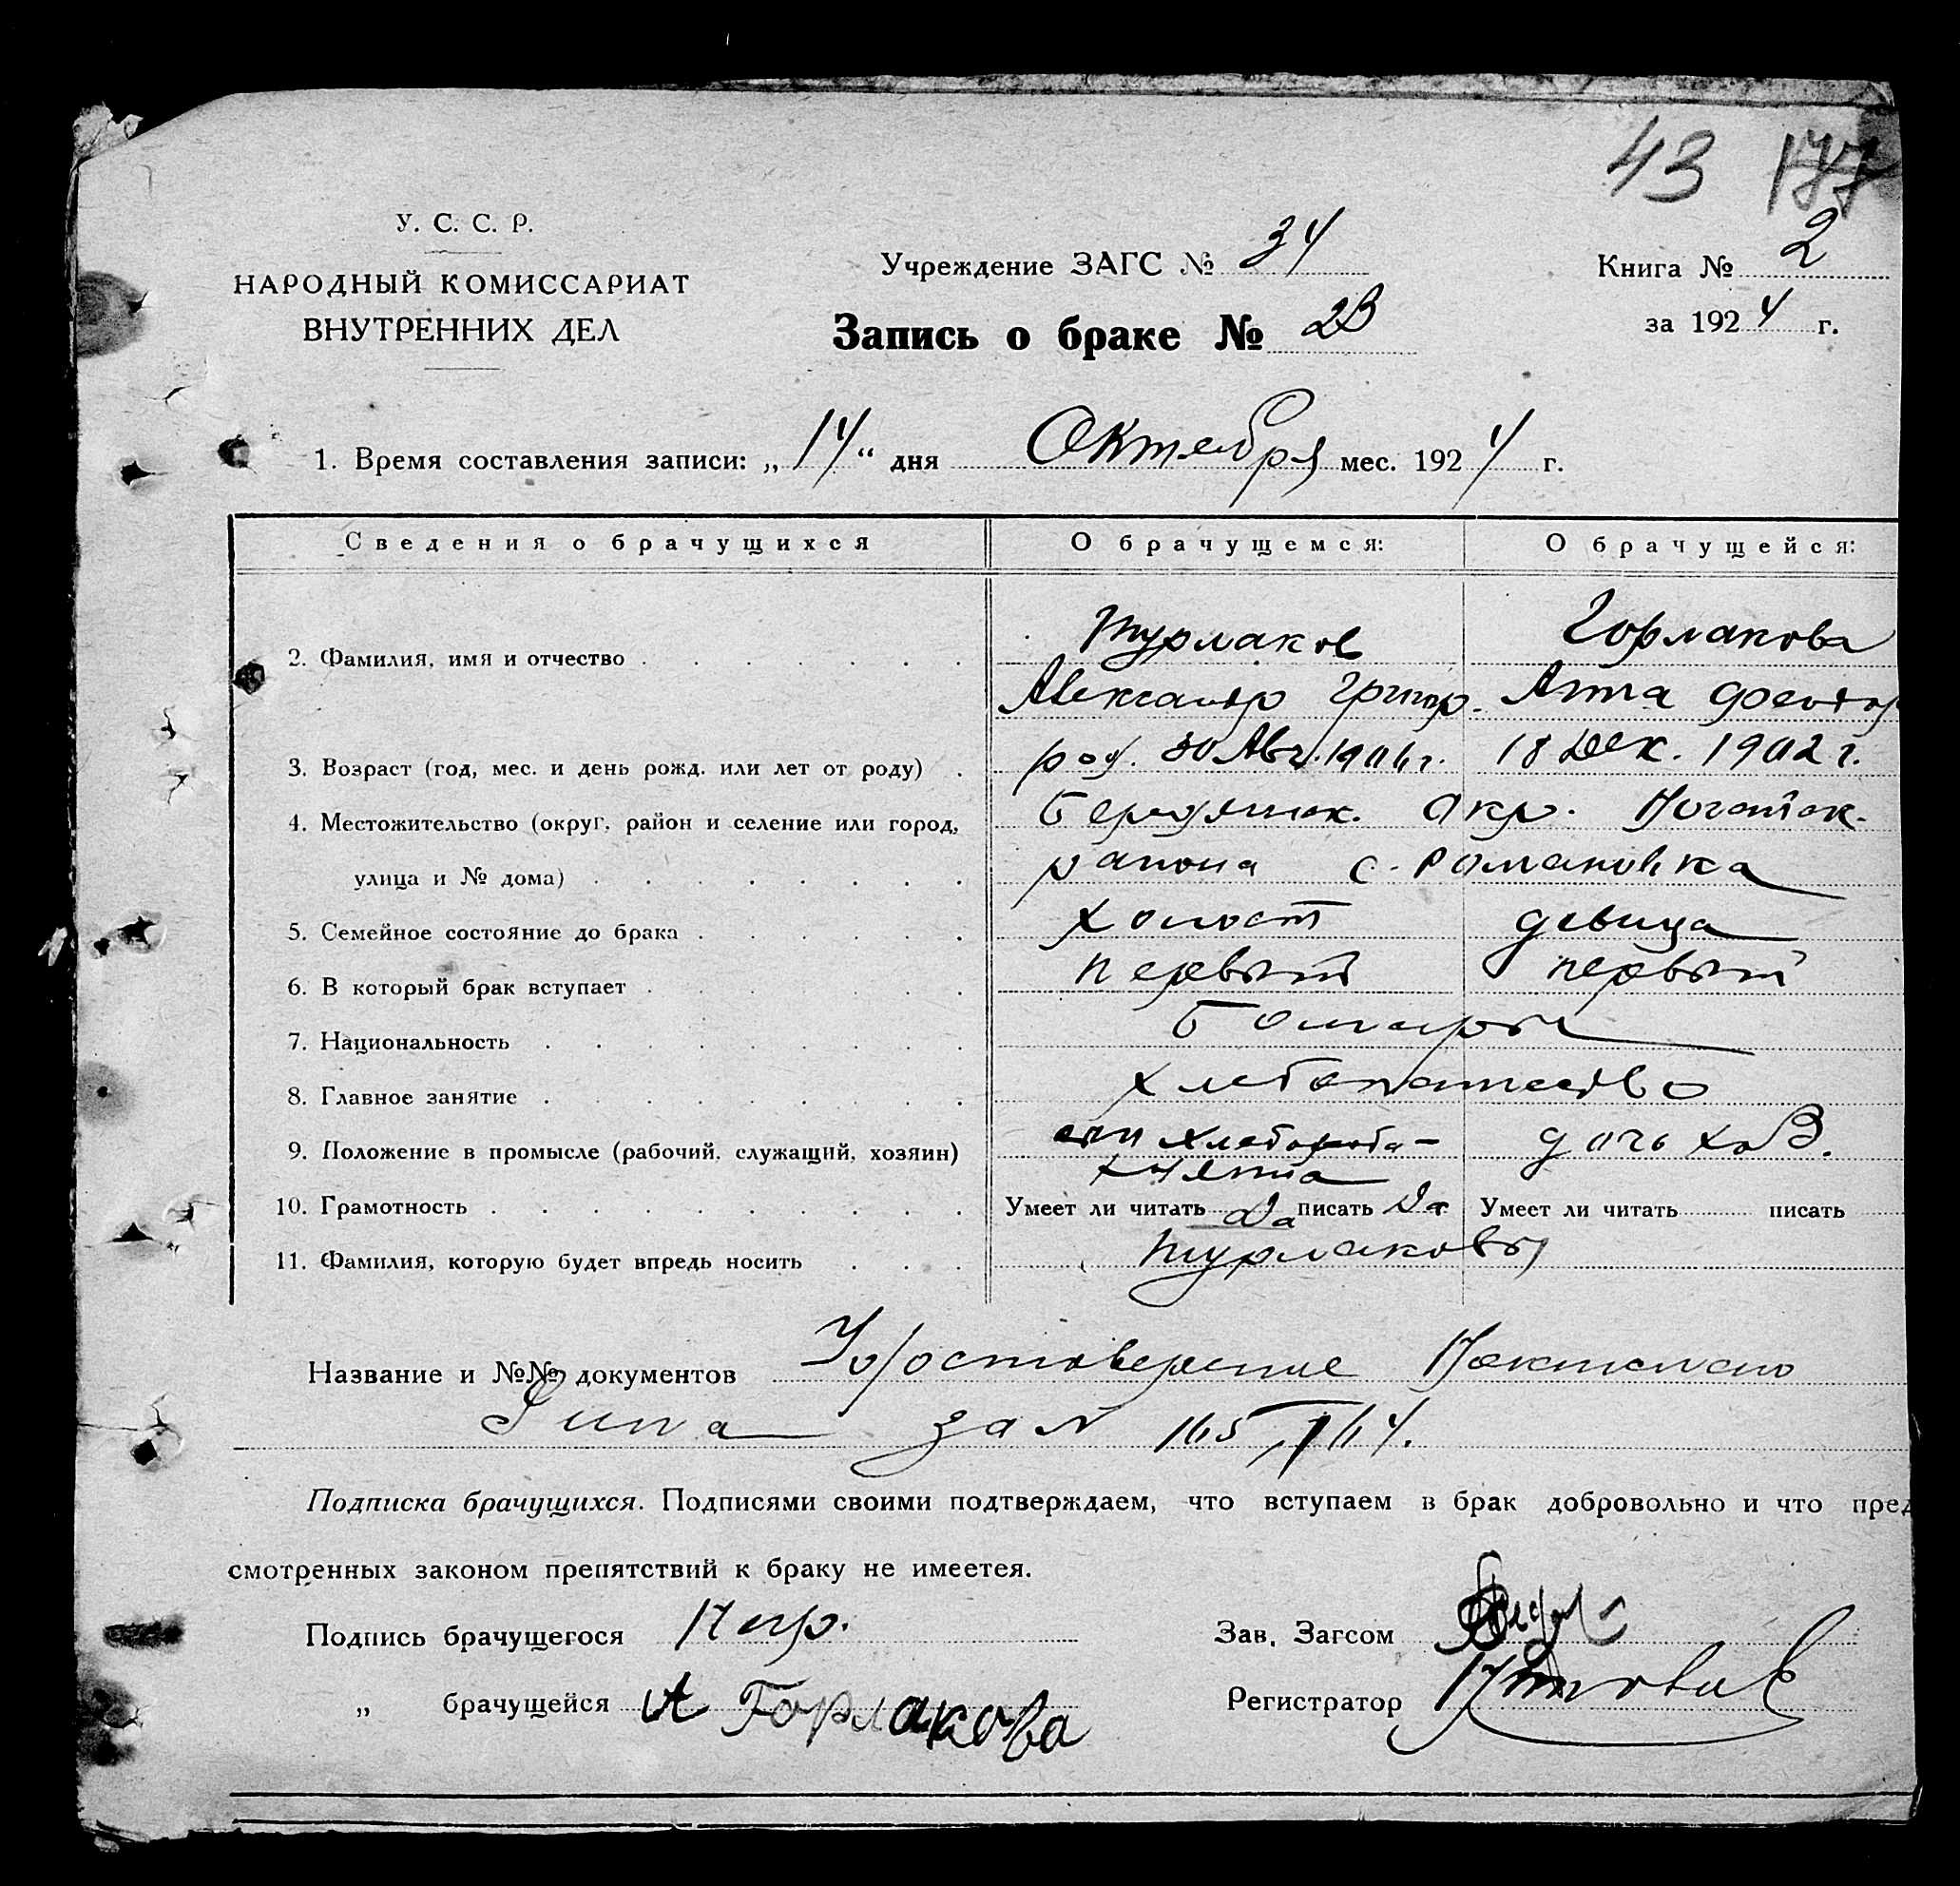 43 177
У. С. С. Р.
НАРОДНЫЙ КОМИССАРИАТ
ВНУТРЕННИХ ДЕЛ
Учреждение ЗАГС № 34
Книга № 2
Запись о браке № 23
за 1924 г.
1. Время составления записи: „14“ дня Октября мес. 1924 г.
Сведения о брачущихся О брачущемся: О брачущейся:
2. Фамилия, имя и отчество Турлаков Горлакова
Александр Григор. Анна Феодор
3. Возраст (год, мес. и день рожд. или лет от роду) род. 30 Авг. 18 Дек. 1902 г.
4. Местожительство (округ, район и селение или город, Бердянск. Окр. Ногайск.
улица и № дома) района с. Романовка
5. Семейное состояние до брака холост девица
6. В который брак вступает первый первый
7. Национальность Болгары
8. Главное занятие хлебопашество
9. Положение в промысле (рабочий, служащий, хозяин) сын хлебороба- дочь хоз.
10. Грамотность Умеет ли читать Да писать Да Умеет ли читать писать
11. Фамилия, которую будет впредь носить Турлаковы
Название и №№ документов Удостоверение
за №
Подписка брачущихся. Подписями своими подтверждаем, что вступаем в брак добровольно и что пред
смотренных законом препятствий к браку не имеется.
Подпись брачущегося Зав. Загсом
„ брачущейся А Горлакова Регистратор